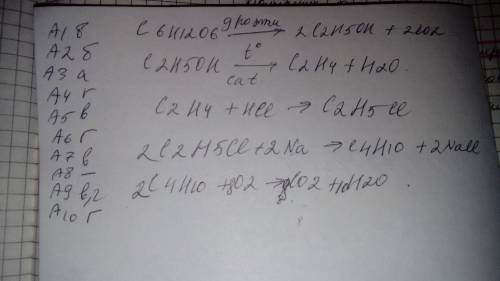 А1 б
А2 б
А3 а
А4 г
А5 в
А6 г
А7 в
А8 —
А9 в,г
А10 г
C6H12O6 дрожжи→ 2C2H5OH + 2CO2
C2H5OH t° → cat. C2H4 + H2O.
C2H4 + HCl → C2H5Cl
2C2H5Cl + 2Na → C4H10 + 2NaCl
2C4H10 + O2 → 8CO2 + 10H2O .